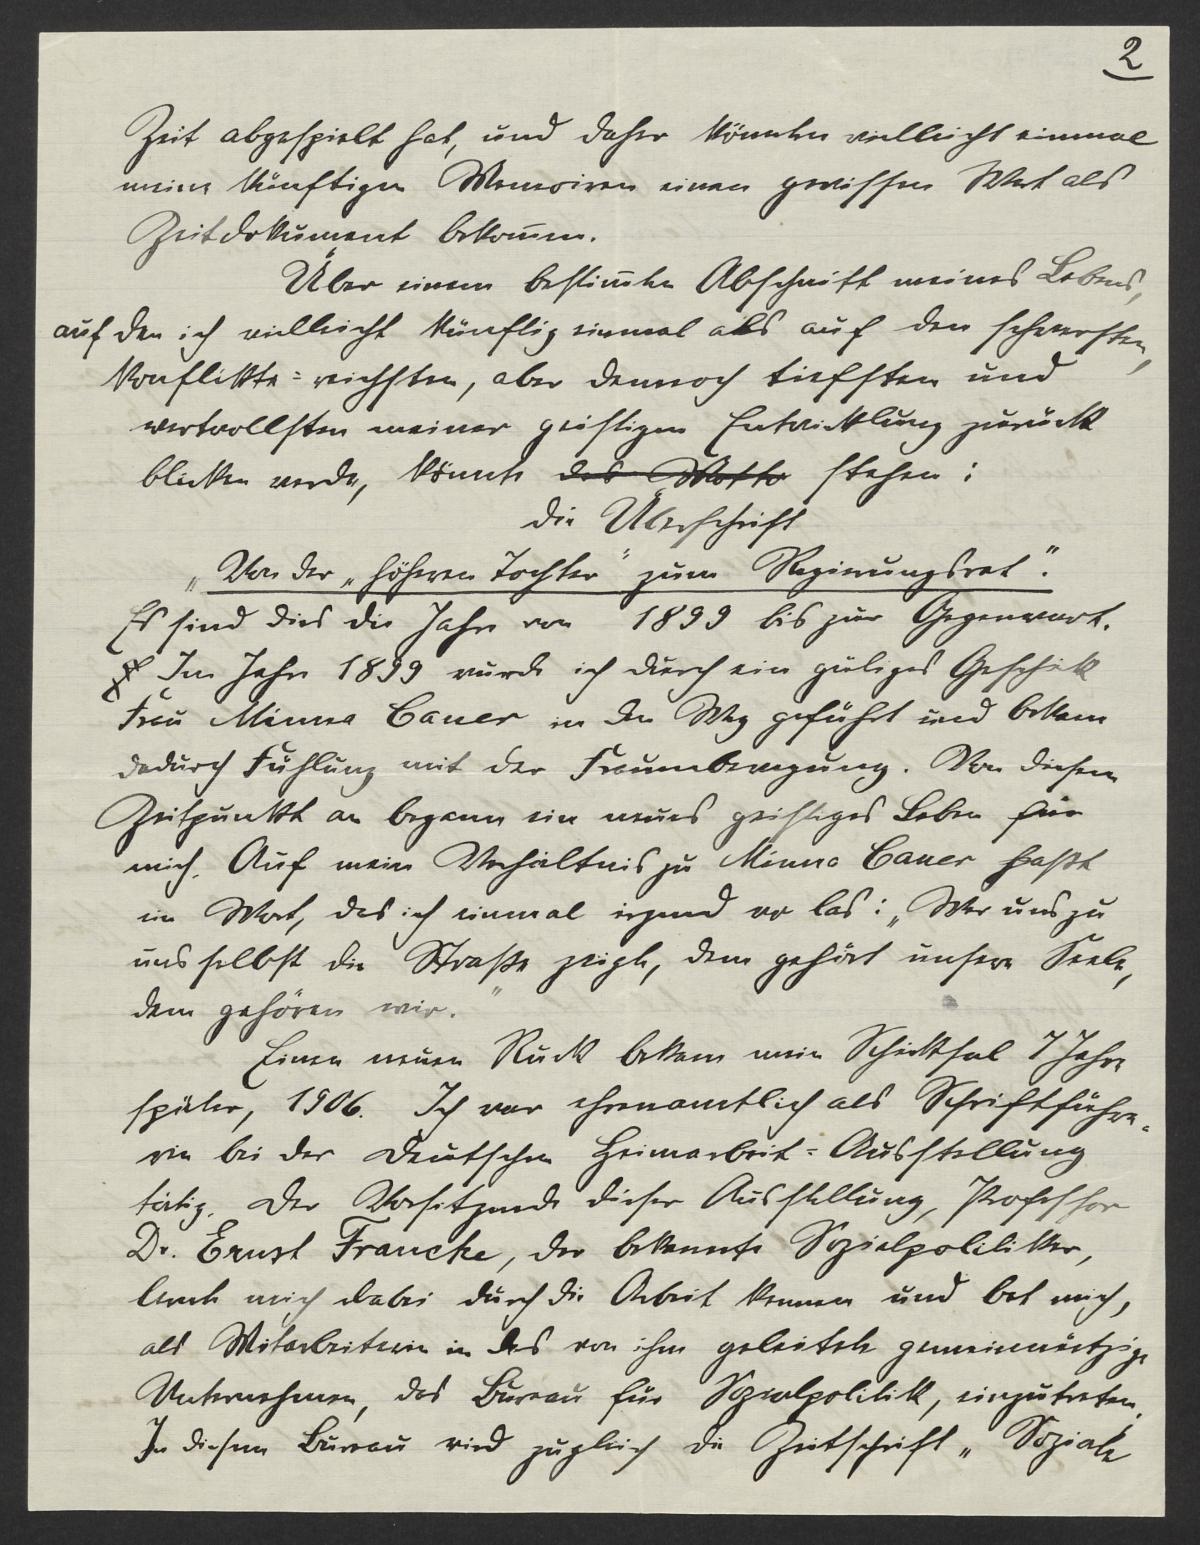 2
Zeit abgespielt hat, und daher könnten vielleicht einmal
meine künftigen Memoiren einen gewissen Wert als
Zeitdokument bekommen.
Über einem bestimmten Abschnitt meines Lebens,
auf den ich vielleicht künftig einmal als auf den schwersten,
konflikte=reichsten, aber dennoch tiefsten und
wertvollsten meiner geistigen Entwicklung zurück
blicken werde, könnte das Motto stehen:
die Überschrift
„Von der „höheren Tochter" zum Regierungsrat".
Es sind dies die Jahre von 1899 bis zur Gegenwart.
Im Jahre 1899 wurde ich durch ein gütiges Geschick
Frau Minna Cauer in den Weg geführt und bekam
dadurch Fühlung mit der Frauenbewegung. Von diesem
Zeitpunkt an begann ein neues geistiges Leben für
mich. Auf mein Verhältnis zu Minna Cauer paßt
ein Wort, das ich einmal irgend wo las: „Wer uns zu
uns selbst die Straße zeigte, dem gehört unsere Seele,
dem gehören wir."
Einen neuen Ruck bekam mein Schicksal 7 Jahre
später, 1906. Ich war ehrenamtlich als Schriftführe=
rin bei der Deutschen Heimarbeit=Ausstellung
tätig. Der Vorsitzende dieser Ausstellung, Professor
Dr. Ernst Francke, der bekannte Sozialpolitiker,
lernte mich dabei durch die Arbeit kennen und bot mich,
als Mitarbeiterin in das von ihm geleitete gemeinnützige
Unternehmen, das Bureau für Sozialpolitik, einzutreten.
In diesem Bureau wird zugleich die Zeitschrift „Soziale